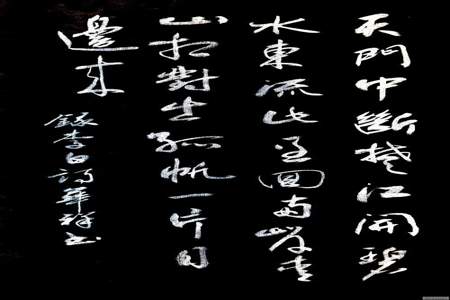 天門中斷楚江開碧
水東流此至回兩岸青
山相對出孤帆一片日
邊來
錄李白詩華祥书